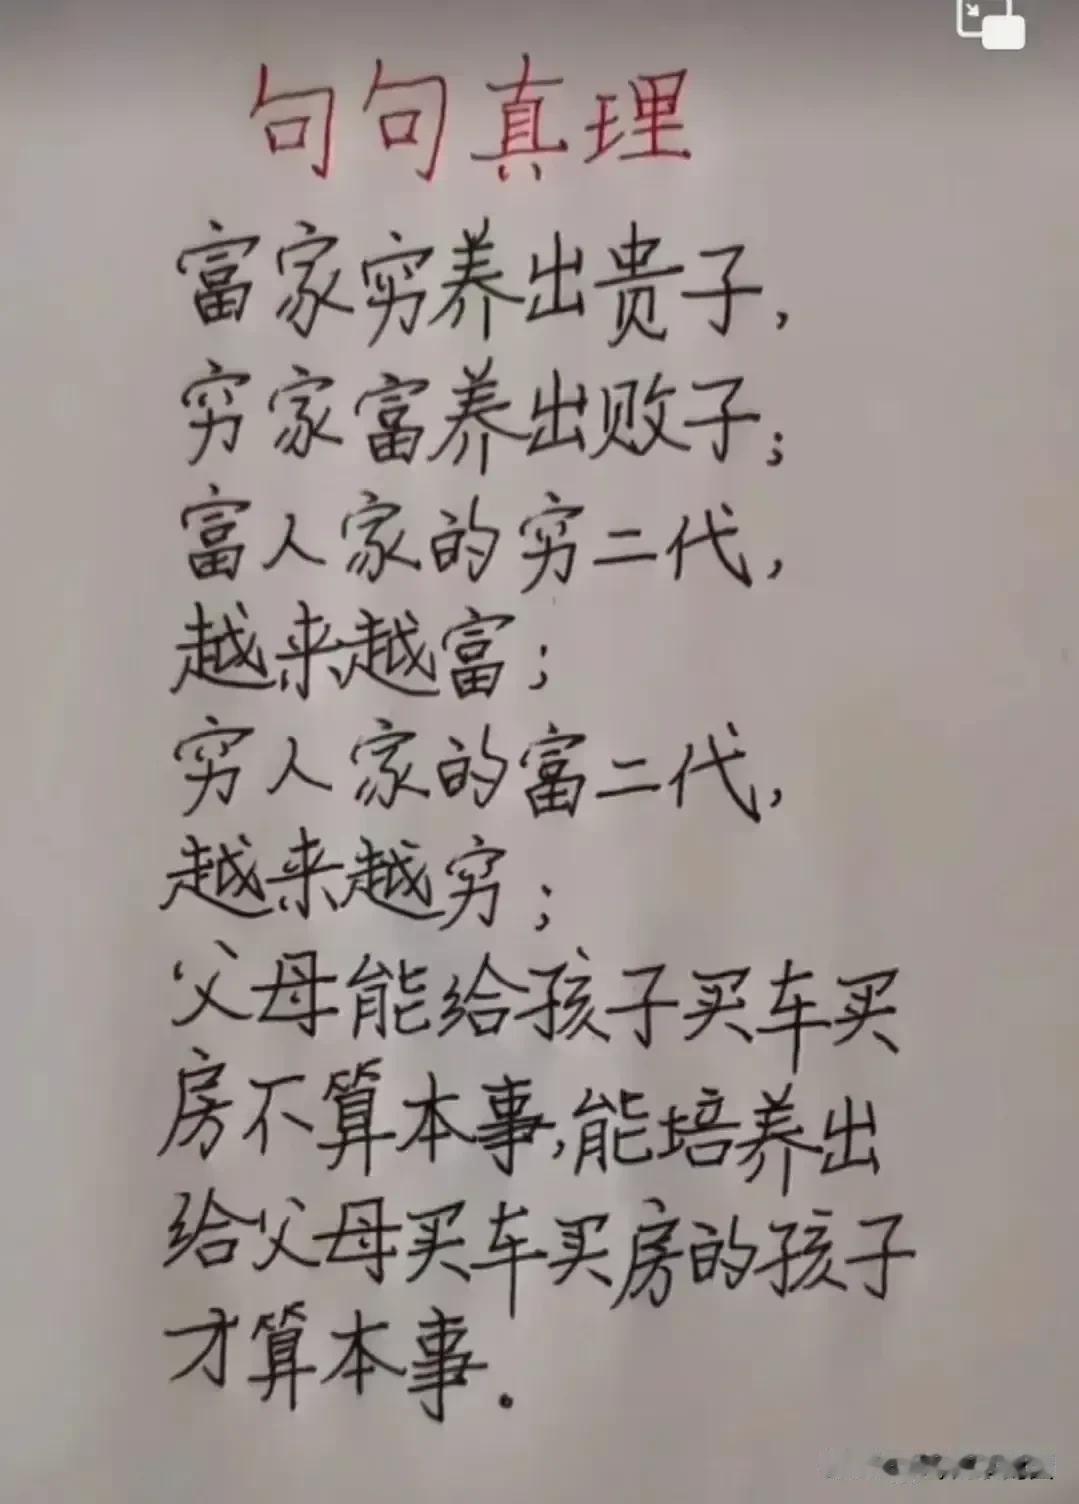 句句真理
富家穷养出贵子，
穷家富养出败子；
富人家的穷二代，
越来越富；
穷人家的富二代，
越来越穷；
父母能给孩子买车买
房不算本事，能培养出
给父母买车买房的孩子
才算本事．